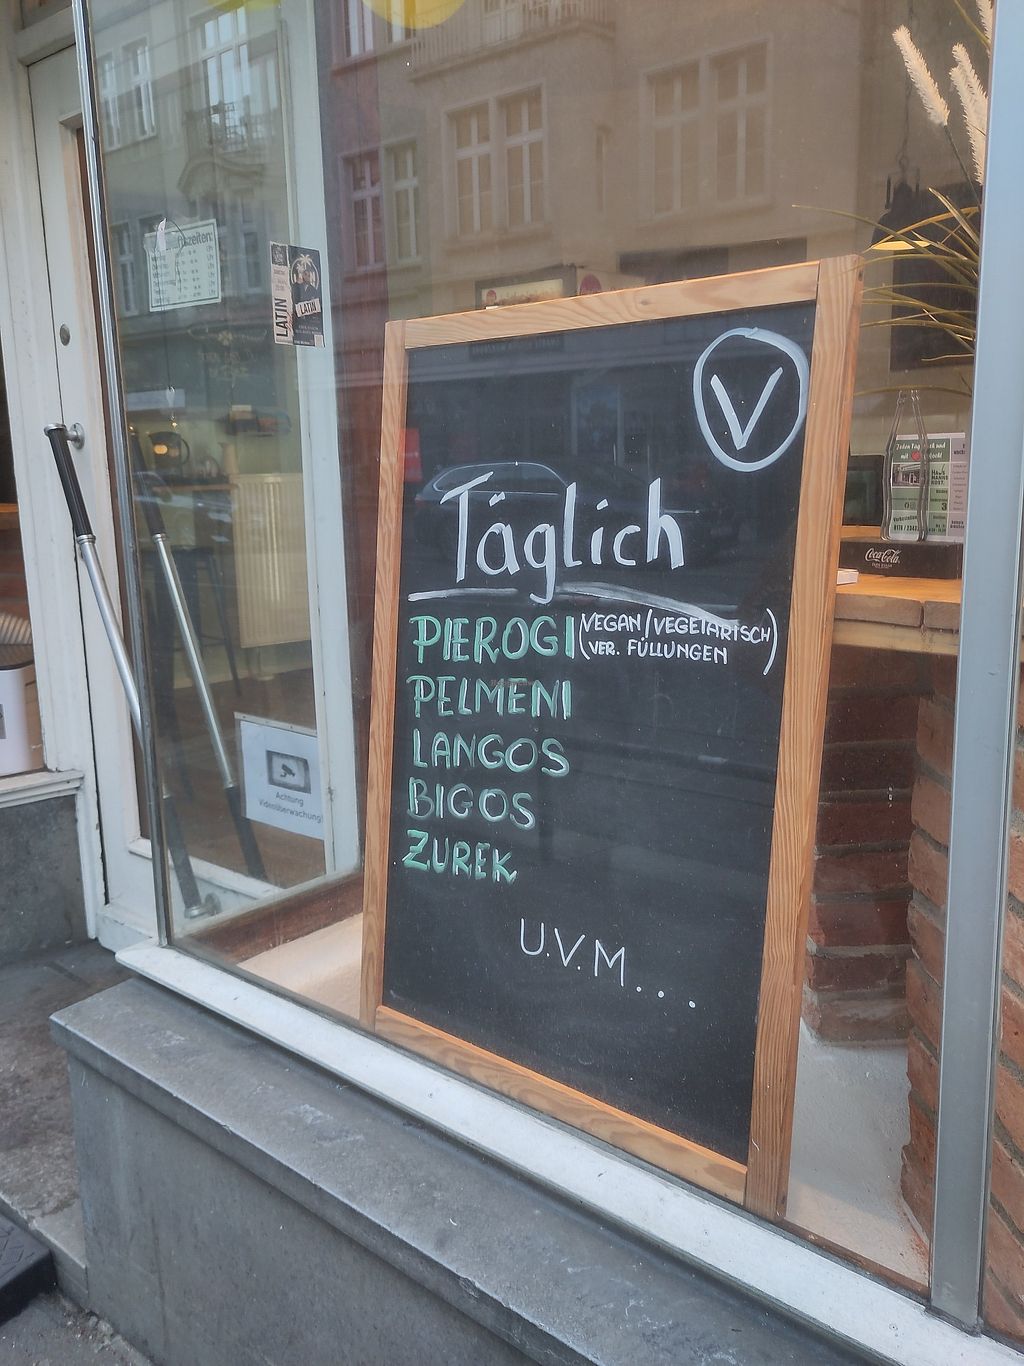 V
Täglich
PIEROGI (VEGAN/VEGETARISCH
VER. FÜLLUNGEN)
PELMENI
LANGOS
BIGOS
ZUREK
U.V.M...
LATIN
LATIN
Achtung
Videoüberwachung!
Coca-Cola